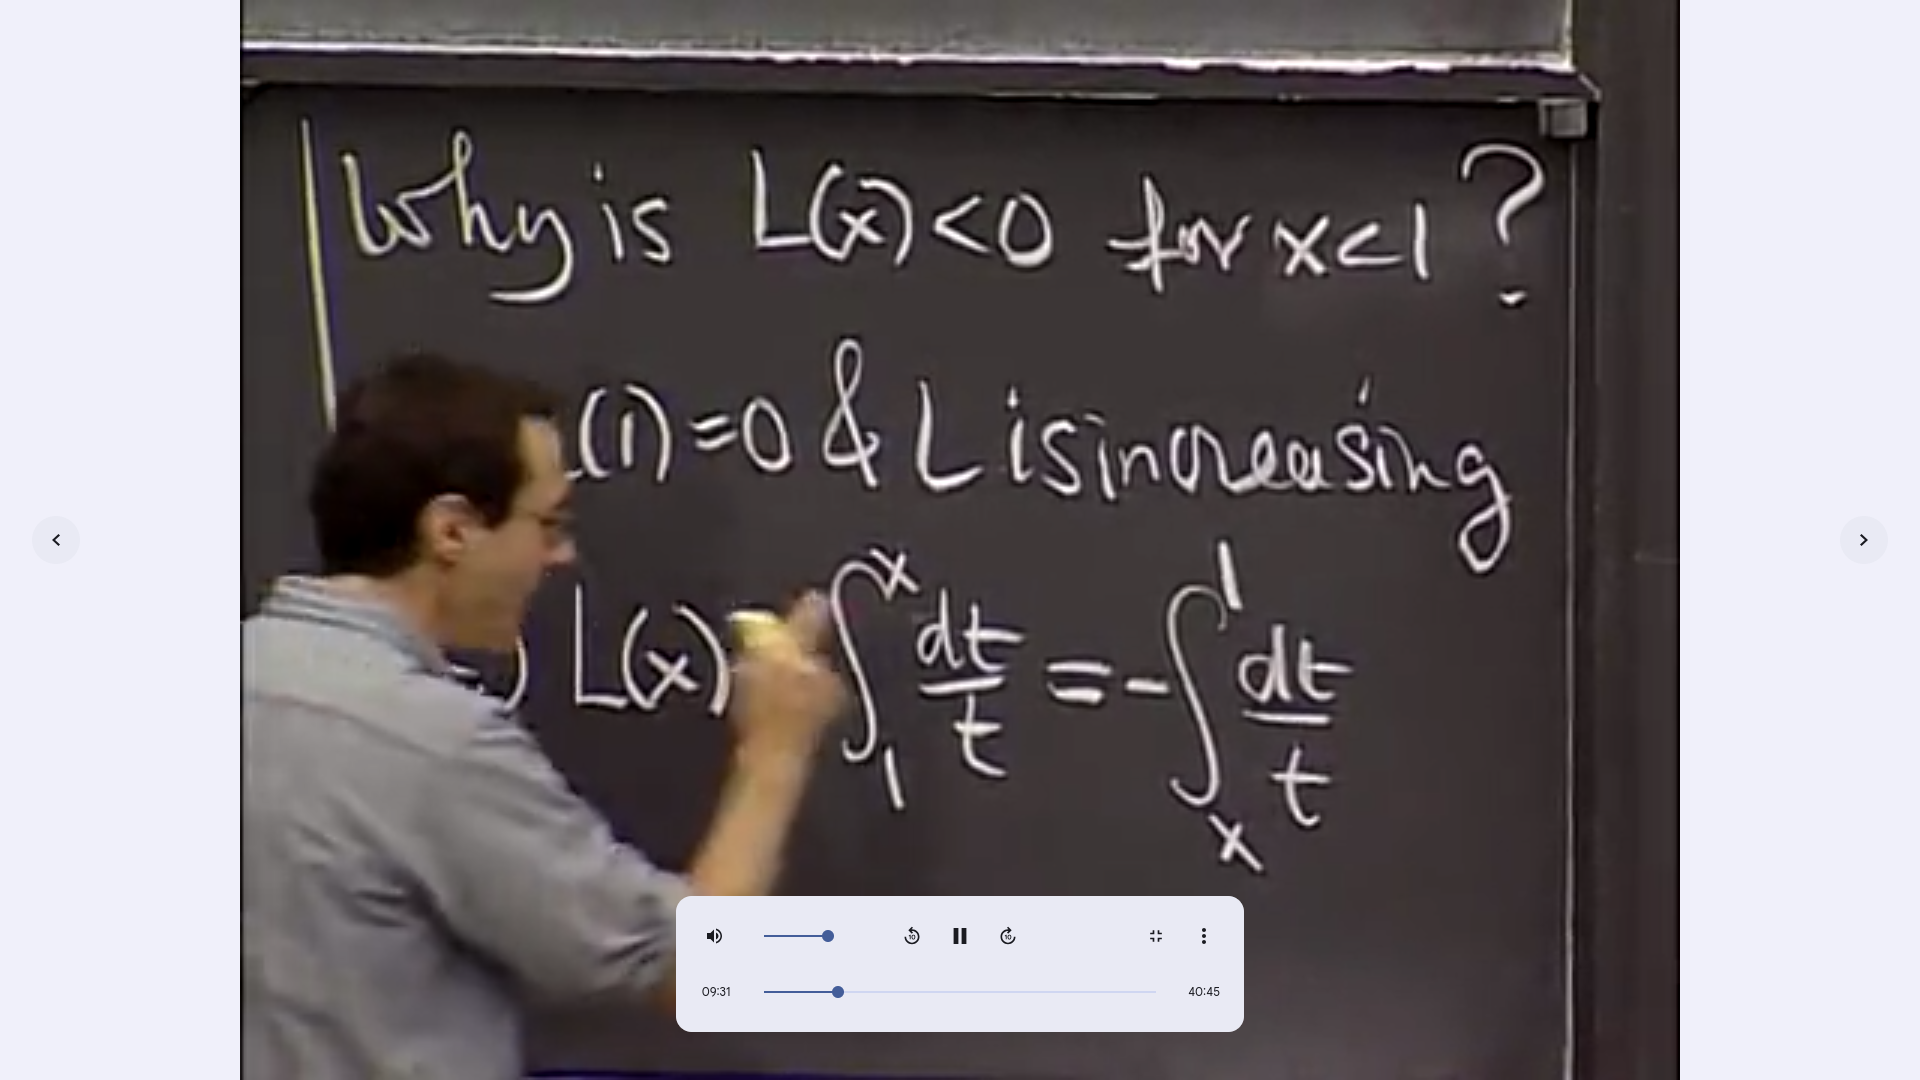 Why is L(x) < 0 for x < 1 ?
(1) = 0 & L is increasing
) L(x) ∫₁ˣ dt/t = - ∫ₓ¹ dt/t
09:31
40:45